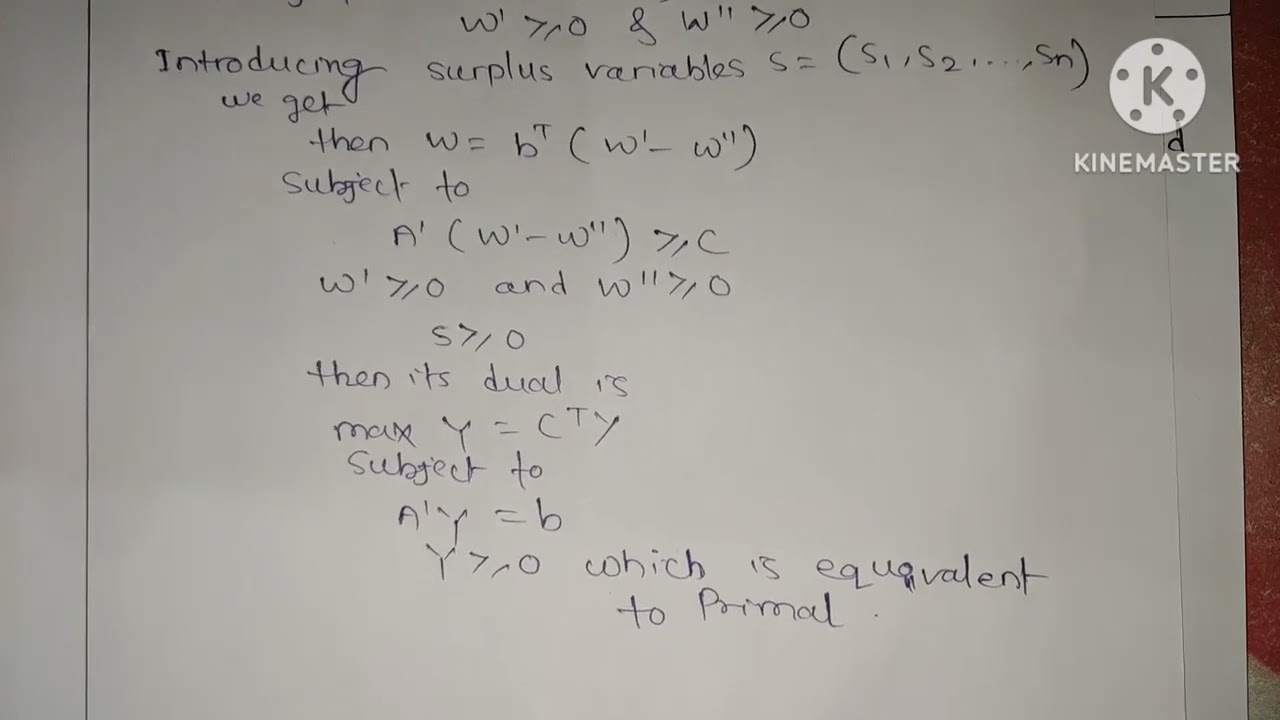 W' ≥ 0 & W'' ≥ 0
Introducing surplus variables S = (S1, S2, ..., Sn)
we get
then W = b^T (W' - W'')
Subject to
A' (W' - W'') ≥ C
W' ≥ 0 and W'' ≥ 0
S ≥ 0
then its dual is
max Y = C^T Y
Subject to
A'Y = b
Y ≥ 0 which is equivalent
to Primal.
K
KINEMASTER